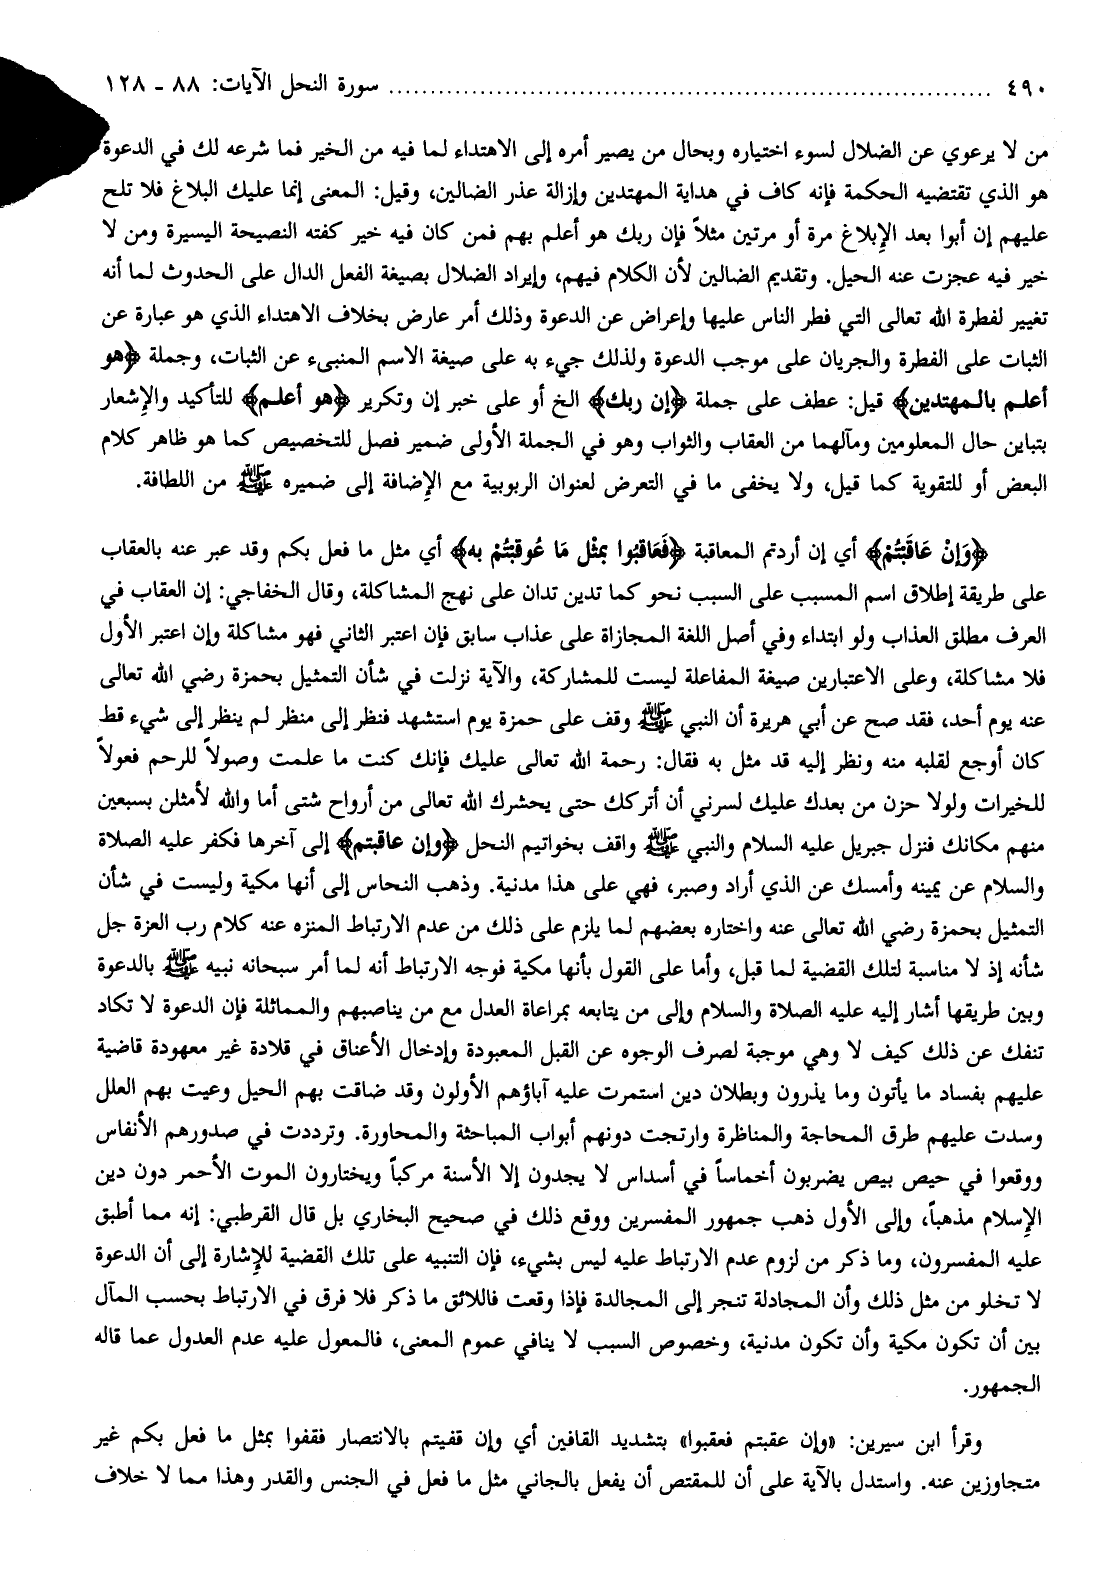 ٤٩٠ ........ سورة النحل الآيات: ٨٨ ـ ١٢٨
من لا يرعوي عن الضلال لسوء اختياره وبحال من يصير أمره إلى الاهتداء لما فيه من الخير فما شرعه لك في الدعوة
هو الذي تقتضيه الحكمة فإنه كاف في هداية المهتدين وإزالة عذر الضالين، وقيل: المعنى إنما عليك البلاغ فلا تلح
عليهم إن أبوا بعد الإبلاغ مرة أو مرتين مثلاً فإن ربك هو أعلم بهم فمن كان فيه خير كفته النصيحة اليسيرة ومن لا
خير فيه عجزت عنه الحيل. وتقديم الضالين لأن الكلام فيهم، وإيراد الضلال بصيغة الفعل الدال على الحدوث لما أنه
تغيير لفطرة الله تعالى التي فطر الناس عليها وإعراض عن الدعوة وذلك أمر عارض بخلاف الاهتداء الذي هو عبارة عن
الثبات على الفطرة والجريان على موجب الدعوة ولذلك جيء به على صيغة الاسم المنبىء عن الثبات، وجملة ﴿هو
أعلم بالمهتدين﴾ قيل: عطف على جملة ﴿إن ربك﴾ الخ أو على خبر إن وتكرير ﴿هو أعلم﴾ للتأكيد والإشعار
بتباين حال المعلومين ومآلهما من العقاب والثواب وهو في الجملة الأولى ضمير فصل للتخصيص كما هو ظاهر كلام
البعض أو للتقوية كما قيل، ولا يخفى ما في التعرض لعنوان الربوبية مع الإضافة إلى ضميره ﷺ من اللطافة.
﴿وَإِنْ عَاقَبْتُمْ﴾ أي إن أردتم المعاقبة ﴿فَعَاقِبُوا بِمِثْلِ مَا عُوقِبْتُمْ بِهِ﴾ أي مثل ما فعل بكم وقد عبر عنه بالعقاب
على طريقة إطلاق اسم المسبب على السبب نحو كما تدين تدان على نهج المشاكلة، وقال الخفاجي: إن العقاب في
العرف مطلق العذاب ولو ابتداء وفي أصل اللغة المجازاة على عذاب سابق فإن اعتبر الثاني فهو مشاكلة وإن اعتبر الأول
فلا مشاكلة، وعلى الاعتبارين صيغة المفاعلة ليست للمشاركة، والآية نزلت في شأن التمثيل بحمزة رضي الله تعالى
عنه يوم أحد، فقد صح عن أبي هريرة أن النبي ﷺ وقف على حمزة يوم استشهد فنظر إلى منظر لم ينظر إلى شيء قط
كان أوجع لقلبه منه ونظر إليه قد مثل به فقال: رحمة الله تعالى عليك فإنك كنت ما علمت وصولاً للرحم فعولاً
للخيرات ولولا حزن من بعدك عليك لسرني أن أتركك حتى يحشرك الله تعالى من أرواح شتى أما والله لأمثلن بسبعين
منهم مكانك فنزل جبريل عليه السلام والنبي ﷺ واقف بخواتيم النحل ﴿وإن عاقبتم﴾ إلى آخرها فكفر عليه الصلاة
والسلام عن يمينه وأمسك عن الذي أراد وصبر، فهي على هذا مدنية. وذهب النحاس إلى أنها مكية وليست في شأن
التمثيل بحمزة رضي الله تعالى عنه واختاره بعضهم لما يلزم على ذلك من عدم الارتباط المنزه عنه كلام رب العزة جل
شأنه إذ لا مناسبة لتلك القضية لما قبل، وأما على القول بأنها مكية فوجه الارتباط أنه لما أمر سبحانه نبيه ﷺ بالدعوة
وبين طريقها أشار إليه عليه الصلاة والسلام وإلى من يتابعه بمراعاة العدل مع من يناصبهم والمماثلة فإن الدعوة لا تكاد
تنفك عن ذلك كيف لا وهي موجبة لصرف الوجوه عن القبل المعبودة وإدخال الأعناق في قلادة غير معهودة قاضية
عليهم بفساد ما يأتون وما يذرون وبطلان دين استمرت عليه آباؤهم الأولون وقد ضاقت بهم الحيل وعيت بهم العلل
وسدت عليهم طرق المحاجة والمناظرة وارتجت دونهم أبواب المباحثة والمحاورة. وترددت في صدورهم الأنفاس
ووقعوا في حيص بيص يضربون أخماساً في أسداس لا يجدون إلا الأسنة مركباً ويختارون الموت الأحمر دون دين
الإسلام مذهباً، وإلى الأول ذهب جمهور المفسرين ووقع ذلك في صحيح البخاري بل قال القرطبي: إنه مما أطبق
عليه المفسرون، وما ذكر من لزوم عدم الارتباط عليه ليس بشيء، فإن التنبيه على تلك القضية للإشارة إلى أن الدعوة
لا تخلو من مثل ذلك وأن المجادلة تنجر إلى المجالدة فإذا وقعت فاللائق ما ذكر فلا فرق في الارتباط بحسب المآل
بين أن تكون مكية وأن تكون مدنية، وخصوص السبب لا ينافي عموم المعنى، فالمعول عليه عدم العدول عما قاله
الجمهور.
وقرأ ابن سيرين: «وإن عقبتم فعقبوا» بتشديد القافين أي وإن قفيتم بالانتصار فقفوا بمثل ما فعل بكم غير
متجاوزين عنه. واستدل بالآية على أن للمقتص أن يفعل بالجاني مثل ما فعل في الجنس والقدر وهذا مما لا خلاف